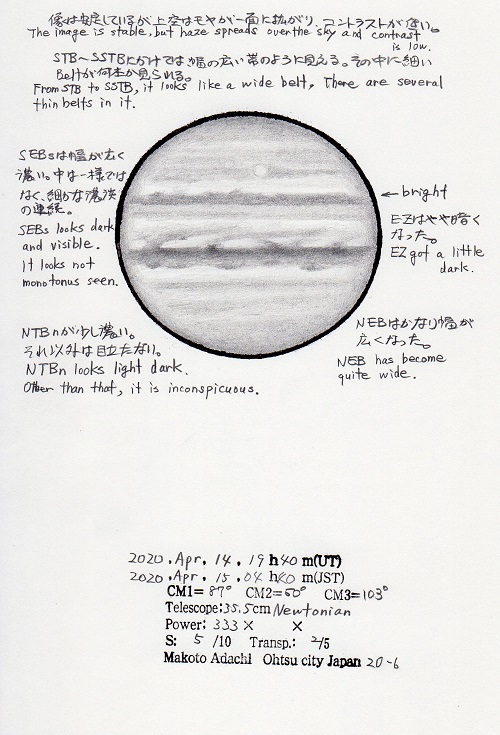 像は安定しているが上空はモヤが一面に拡がり、コントラストが低い。
The image is stable, but haze spreads over the sky and contrast
is low.
STB～SSTBにかけては幅の広い帯のように見える。その中に細い
beltが何本か見られる。
From STB to SSTB, it looks like a wide belt, There are several
thin belts in it.
SEBsは幅が広く
濃い。中は一様では
なく、細かな濃淡
の連続。
SEBs looks dark
and visible.
It looks not
monotonus seen.
← bright
EZはやや暗く
なった。
EZ got a little
dark.
NTBnが少し濃い。
それ以外は目立たない。
NTBn looks light dark.
Other than that, it is inconspicuous.
NEBはかなり幅が
広くなった。
NEB has become
quite wide.
2020 . Apr . 14 . 19 h 40 m(UT)
2020 . Apr . 15 . 04 h 40 m(JST)
CM1= 87° CM2= 50° CM3= 103°
Telescope: 35.5cm Newtonian
Power: 333 × ×
S: 5 /10 Transp.: 2/5
Makoto Adachi Ohtsu city Japan 20-6